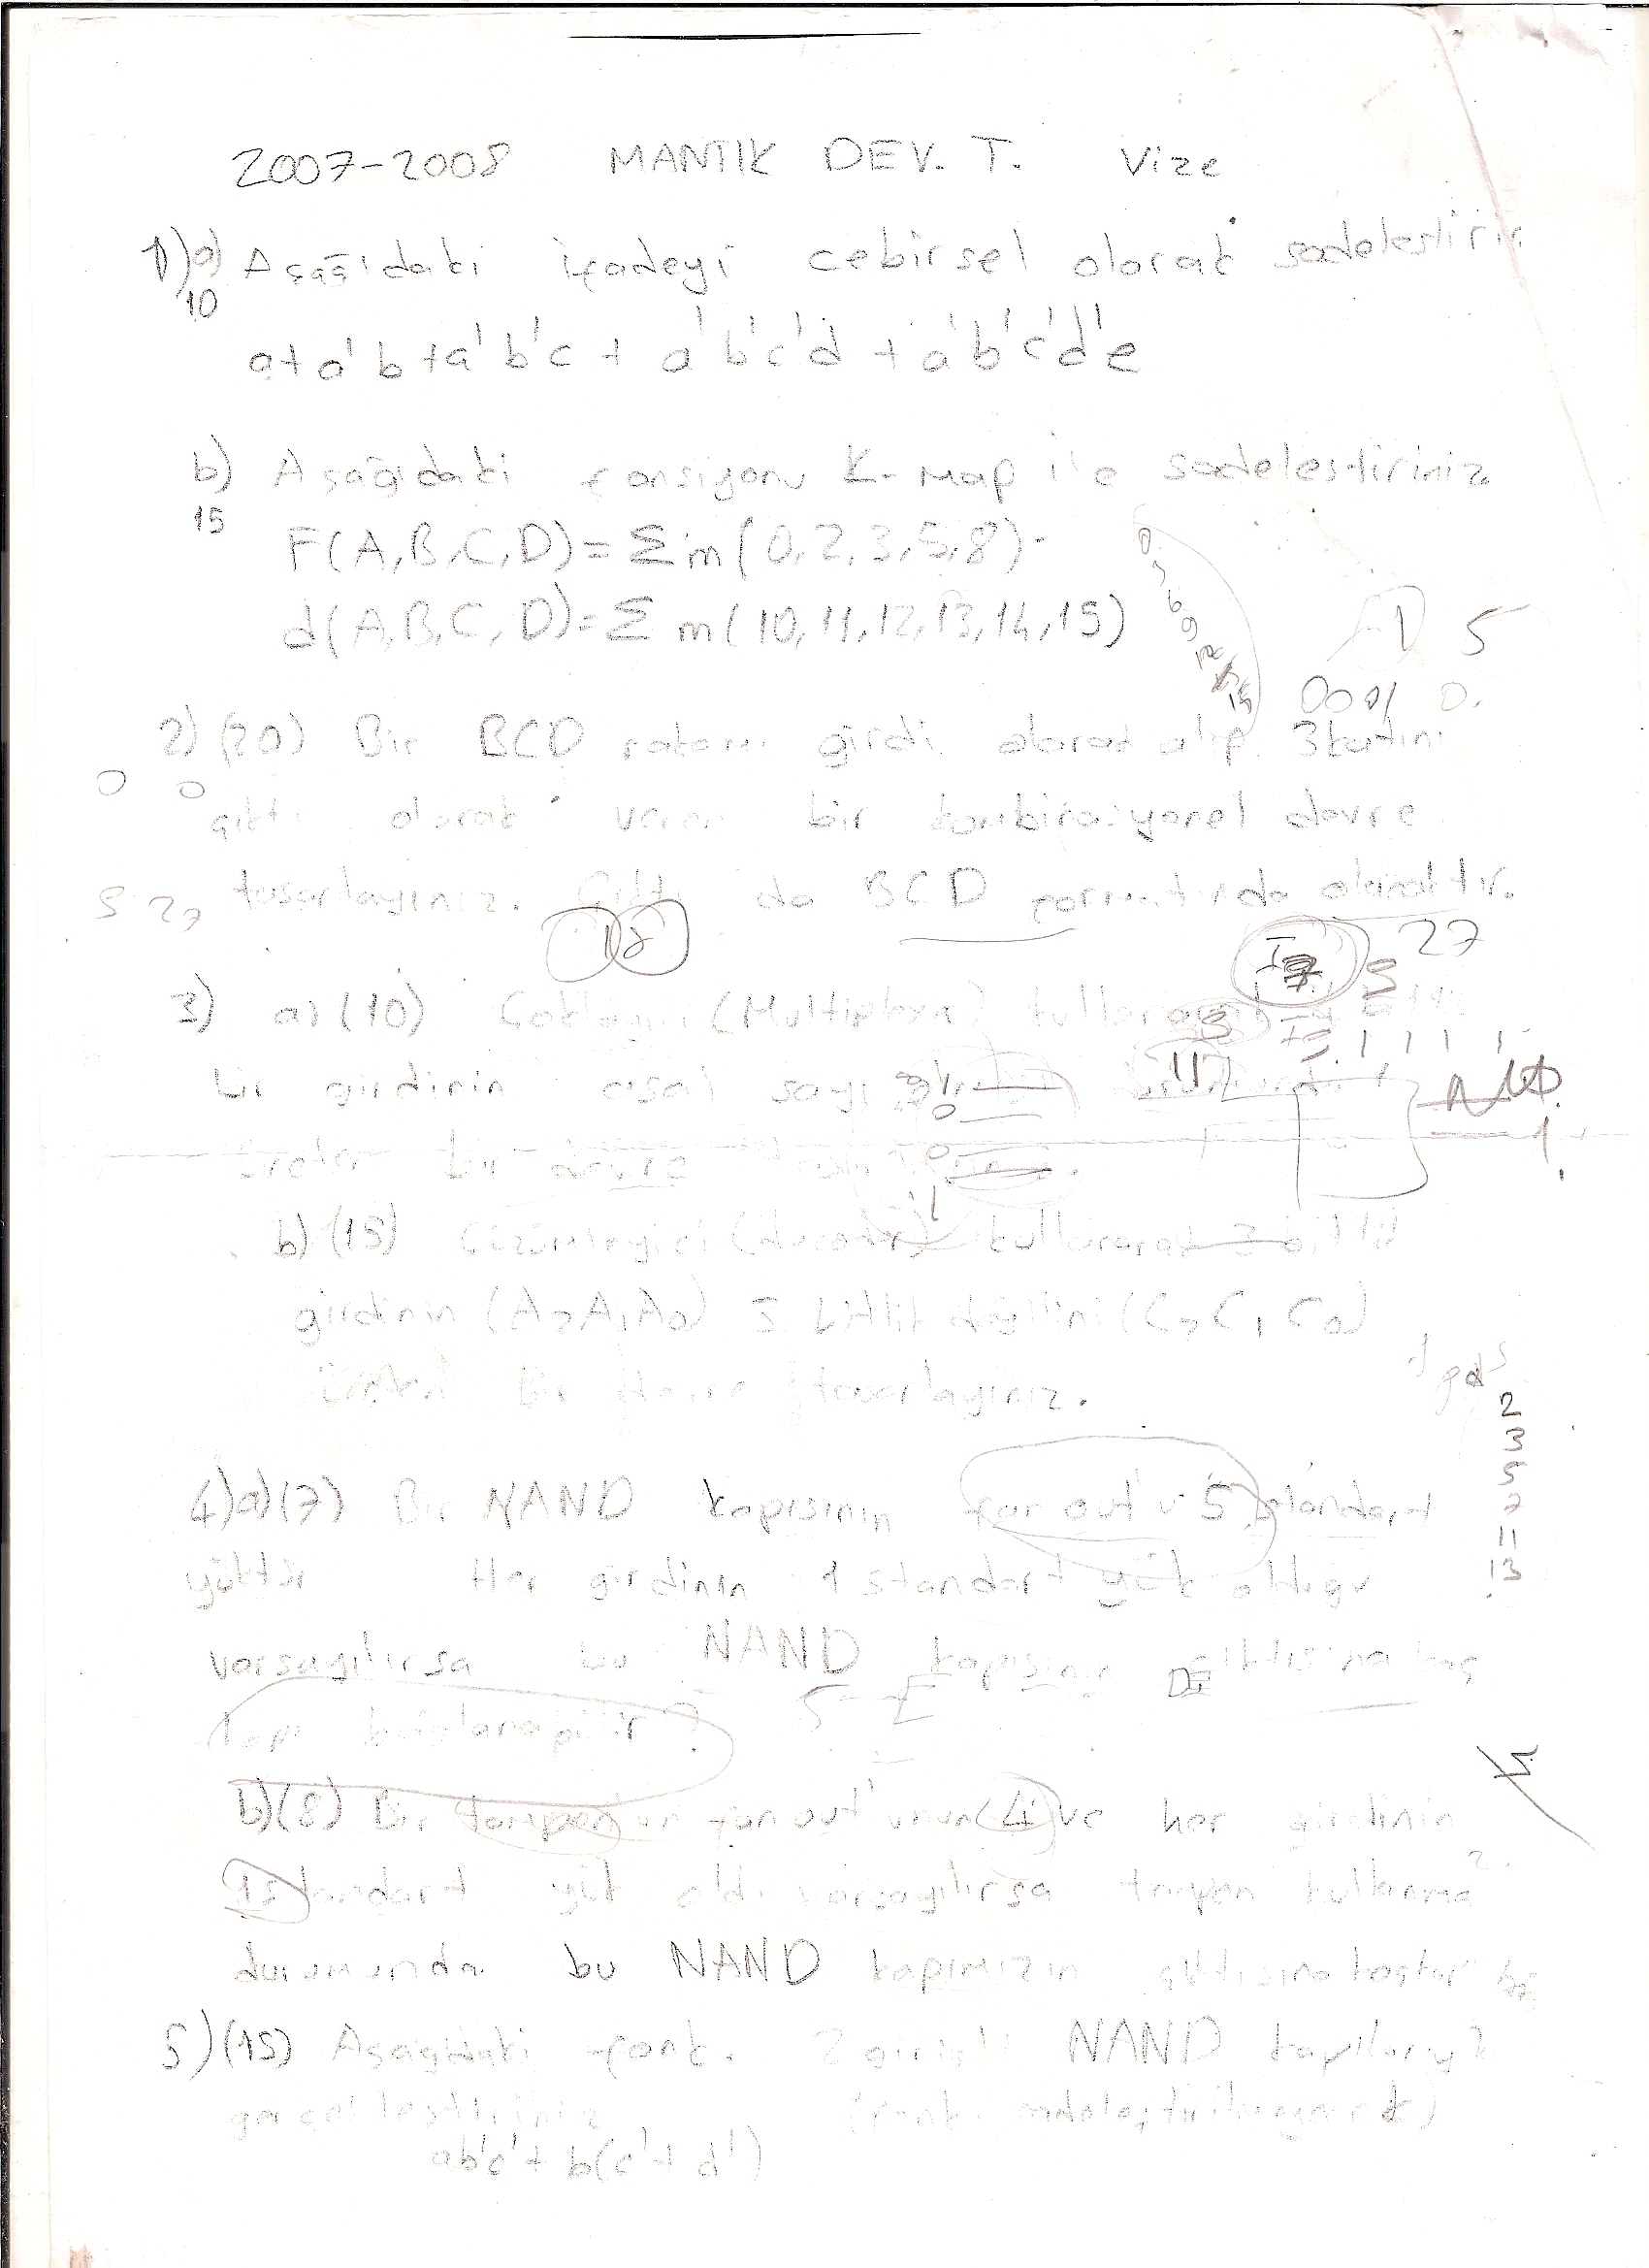 2007-2008 MANTIK DEV. T. Vize
1)a) Aşağıdaki ifadeyi cebirsel olarak sadeleştirin
10
a+a'b+a'b'c+a'b'c'd+a'b'c'd'e
b) Aşağıdaki fonsiyonu K-Map ile sadeleştiriniz
15
F(A,B,C,D)=Σm(0,2,3,5,8).
d(A,B,C,D)=Σm(10,11,12,13,14,15)
0 3 6 9 12
15
5
0001 0.
2)(20) Bir BCD rakamı girdi olarak alıp 3katını
0 0
çıktı olarak veren bir kombinasyonel devre
9 27 tasarlayınız. Çıktı da BCD formatında olacaktır.
18
27
3) a)(10) Çoklayıcı (Multiplexer)
bir girdinin asal sayı
üreten bir devre
b)(15) Çözümleyici (decoder) kullanarak 3 bitlik
girdinin (A2A1A0) 3 bitlik değilini (C2C1C0)
üreten bir devre tasarlayınız.
2
3
5
7
11
13
4)a)(7) Bir NAND kapısının fan out'u 5 standart
yüktür Her girdinin 1 standart yük olduğu
varsayılırsa bu NAND kapısının çıktısına kaç
kapı bağlanabilir?
b)(8) Bir tamponun fan out'unun 4 ve her girdinin
1 standart yük oldu varsayılırsa tampon kullanma
durumunda bu NAND kapımızın çıktısına
5)(15) Aşağıdaki fonk. 2 girişli NAND kapılarıyla
gerçekleştiriniz (fonk. sadeleştirilmeyecek)
ab'c'+b(c'+d')